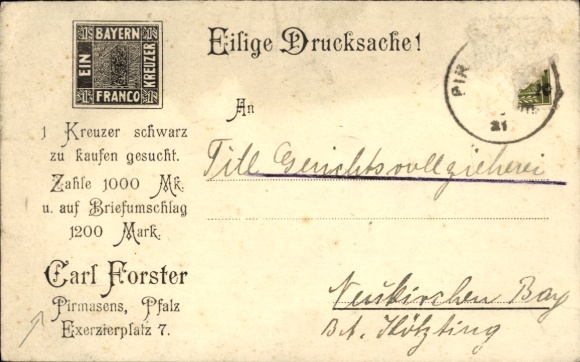 Eilige Drucksache!
BAYERN
EIN
KREUZER
FRANCO
1 1
1 1
PIR
21
An
1 Kreuzer schwarz
zu kaufen gesucht.
Zahle 1000 Mk.
u. auf Briefumschlag
1200 Mark.
Titl Gerichtsvollzieherei
Carl Forster
Pirmasens, Pfalz
Exerzierplatz 7.
Neukirchen Bay
B.A. Kötzting